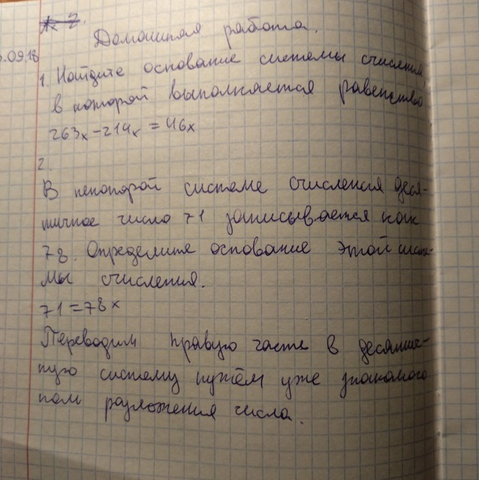 № 2.
Домашняя работа.
.09.18
1. Найдите основание системы счисления,
в которой выполняется равенство
263x - 214x = 46x
2.
В некоторой системе счисления деся-
тичное число 71 записывается как
78. Определите основание этой систе-
мы счисления.
71 = 78x
Переводим правую часть в десятич-
ную систему путём уже знакомого
нам разложения числа.